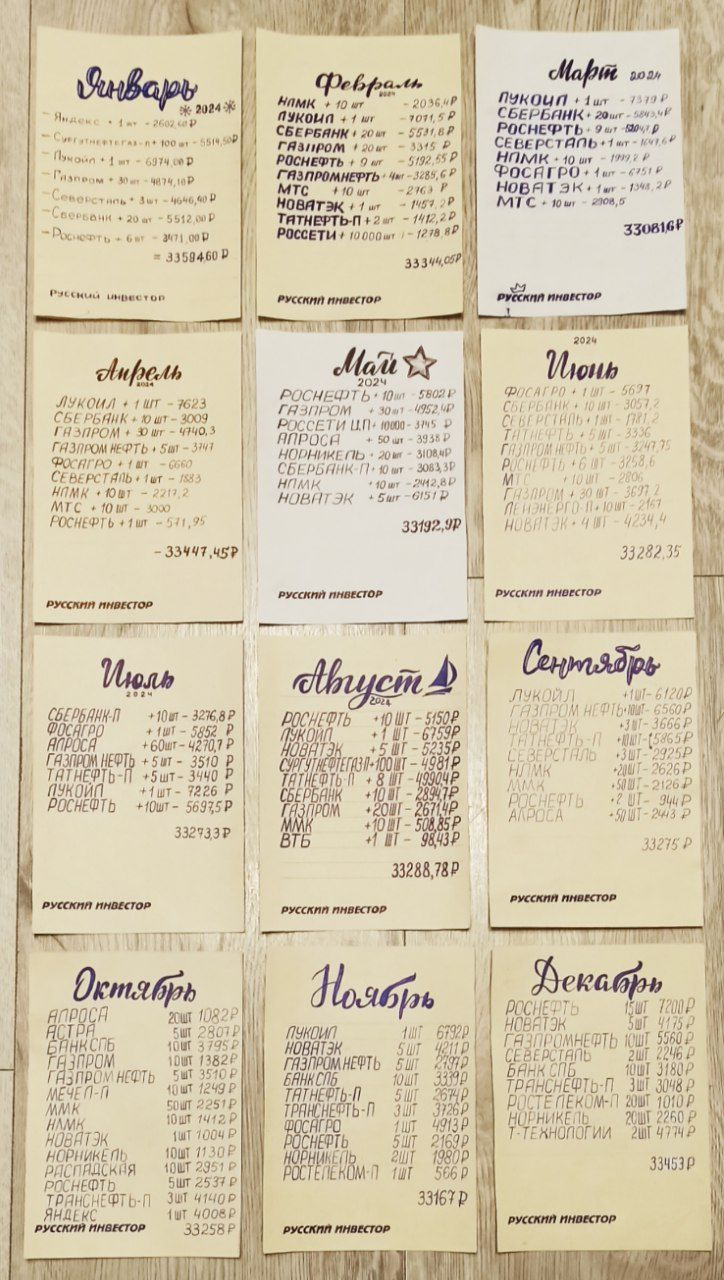 Январь
*2024*
- Яндекс + 1 шт - 2602,60 ₽
- Сургутнефтегаз-п + 100 шт - 5514,50₽
- Лукойл + 1 шт - 6974,00 ₽
- Газпром + 30 шт - 4874,10₽
- Северсталь + 3 шт - 4646,40 ₽
- Сбербанк + 20 шт - 5512,00₽
- Роснефть + 6 шт - 3471,00 ₽
= 33594,60 ₽
РУССКИЙ ИНВЕСТОР
Февраль
2024
НЛМК + 10 шт - 2036,4₽
ЛУКОИЛ + 1 шт - 7011,5₽
СБЕРБАНК + 20 шт - 5531,8₽
ГАЗПРОМ + 20 шт - 3315 ₽
РОСНЕФТЬ + 9 шт - 5192,55₽
ГАЗПРОМНЕФТЬ + 4 шт - 3285,6₽
МТС + 10 шт - 2763 ₽
НОВАТЭК + 1 шт - 1457,2₽
ТАТНЕФТЬ-П + 2 шт - 1412,2₽
РОССЕТИ + 10000 шт - 1278,8₽
33344,05₽
РУССКИЙ ИНВЕСТОР
Март 2024
ЛУКОИЛ + 1 шт - 7379 ₽
СБЕРБАНК + 20 шт - 5843,4₽
РОСНЕФТЬ + 9 шт
СЕВЕРСТАЛЬ + 1 шт - 1641,6₽
НЛМК + 10 шт - 1999,2 ₽
ФОСАГРО + 1 шт - 6751 ₽
НОВАТЭК + 1 шт - 1348,2 ₽
МТС + 10 шт - 2908,5
33081,6₽
РУССКИЙ ИНВЕСТОР
Апрель
2024
ЛУКОИЛ + 1 ШТ - 7623
СБЕРБАНК + 10 ШТ - 3009
ГАЗПРОМ + 30 ШТ - 4740,3
ГАЗПРОМНЕФТЬ + 5 ШТ - 3747
ФОСАГРО + 1 ШТ - 6660
СЕВЕРСТАЛЬ + 1 ШТ - 1883
НЛМК + 10 ШТ - 2217,2
МТС + 10 ШТ - 3000
РОСНЕФТЬ + 1 ШТ - 571,95
- 33447,45₽
РУССКИЙ ИНВЕСТОР
Май
2024
РОСНЕФТЬ + 10 шт - 5802₽
ГАЗПРОМ + 30 шт - 4952,4₽
РОССЕТИ Ц.П + 10000 - 3745 ₽
АЛРОСА + 50 шт - 3938 ₽
НОРНИКЕЛЬ + 20 шт - 3108,4₽
СБЕРБАНК-П + 10 шт - 3083,3₽
НЛМК + 10 шт - 2412,8₽
НОВАТЭК + 5 шт - 6151 ₽
33192,9₽
РУССКИЙ ИНВЕСТОР
2024
Июнь
ФОСАГРО + 1 ШТ - 5697
СБЕРБАНК + 10 ШТ - 3057,2
СЕВЕРСТАЛЬ + 1 ШТ - 1781,2
ТАТНЕФТЬ + 5 ШТ - 3336
ГАЗПРОМНЕФТЬ + 5 ШТ - 3247,75
РОСНЕФТЬ + 6 ШТ - 3258,6
МТС + 10 ШТ - 2806
ГАЗПРОМ + 30 ШТ - 3697,2
ЛЕНЭНЕРГО-П + 10 ШТ - 2167
НОВАТЭК + 4 ШТ - 4234,4
33282,35
РУССКИЙ ИНВЕСТОР
Июль
2024
СБЕРБАНК-П + 10 ШТ - 3276,8₽
ФОСАГРО + 1 ШТ - 5852 ₽
АЛРОСА + 60 ШТ - 4270,7₽
ГАЗПРОМ НЕФТЬ + 5 ШТ - 3510 ₽
ТАТНЕФТЬ-П + 5 ШТ - 3440 ₽
ЛУКОЙЛ + 1 ШТ - 7226 ₽
РОСНЕФТЬ + 10 ШТ - 5697,5₽
33273,3₽
РУССКИЙ ИНВЕСТОР
Август
2024
РОСНЕФТЬ + 10 ШТ - 5150₽
ЛУКОЙЛ + 1 ШТ - 6759₽
НОВАТЭК + 5 ШТ - 5235₽
СУРГУТНЕФТЕГАЗП + 100 ШТ - 4981₽
ТАТНЕФТЬ-П + 8 ШТ - 4990,4₽
СБЕРБАНК + 10 ШТ - 2894,7₽
ГАЗПРОМ + 20 ШТ - 2671,4₽
ММК + 10 ШТ - 508,85₽
ВТБ + 1 ШТ - 98,43₽
33288,78 ₽
РУССКИЙ ИНВЕСТОР
Сентябрь
ЛУКОЙЛ + 1 ШТ - 6120₽
ГАЗПРОМ НЕФТЬ + 10 ШТ - 6560₽
НОВАТЭК + 3 ШТ - 3666₽
ТАТНЕФТЬ-П + 10 ШТ - 5865₽
СЕВЕРСТАЛЬ + 3 ШТ - 2925₽
НЛМК + 20 ШТ - 2626₽
ММК + 50 ШТ - 2126₽
РОСНЕФТЬ + 2 ШТ - 944₽
АЛРОСА + 50 ШТ - 2443 ₽
33275 ₽
РУССКИЙ ИНВЕСТОР
Октябрь
АЛРОСА 20ШТ 1082₽
АСТРА 5ШТ 2807₽
БАНКСПБ 10ШТ 3795₽
ГАЗПРОМ 10ШТ 1382₽
ГАЗПРОМ НЕФТЬ 5ШТ 3510₽
МЕЧЕЛ-П 10ШТ 1249₽
ММК 50ШТ 2251₽
НЛМК 10ШТ 1412₽
НОВАТЭК 1ШТ 1004₽
НОРНИКЕЛЬ 10ШТ 1130₽
РАСПАДСКАЯ 10ШТ 2951₽
РОСНЕФТЬ 5ШТ 2537₽
ТРАНСНЕФТЬ-П 3ШТ 4140₽
ЯНДЕКС 1ШТ 4008₽
РУССКИЙ ИНВЕСТОР 33258₽
Ноябрь
ЛУКОИЛ 1ШТ 6792₽
НОВАТЭК 5ШТ 4211₽
ГАЗПРОМ.НЕФТЬ 5ШТ 2797₽
БАНК СПБ 10ШТ 3339₽
ТАТНЕФТЬ-П 5ШТ 2674₽
ТРАНСНЕФТЬ-П 3ШТ 3726₽
ФОСАГРО 1ШТ 4913₽
РОСНЕФТЬ 5ШТ 2169₽
НОРНИКЕЛЬ 2ШТ 1980₽
РОСТЕЛЕКОМ-П 1ШТ 566 ₽
33167 ₽
РУССКИЙ ИНВЕСТОР
Декабрь
РОСНЕФТЬ 15ШТ 7200₽
НОВАТЭК 5ШТ 4175₽
ГАЗПРОМНЕФТЬ 10ШТ 5560₽
СЕВЕРСТАЛЬ 2ШТ 2246₽
БАНК СПБ 10ШТ 3180₽
ТРАНСНЕФТЬ-П 3ШТ 3048₽
РОСТЕЛЕКОМ-П 20ШТ 1010₽
НОРНИКЕЛЬ 20ШТ 2260₽
Т-ТЕХНОЛОГИИ 2ШТ 4774₽
33453₽
РУССКИЙ ИНВЕСТОР